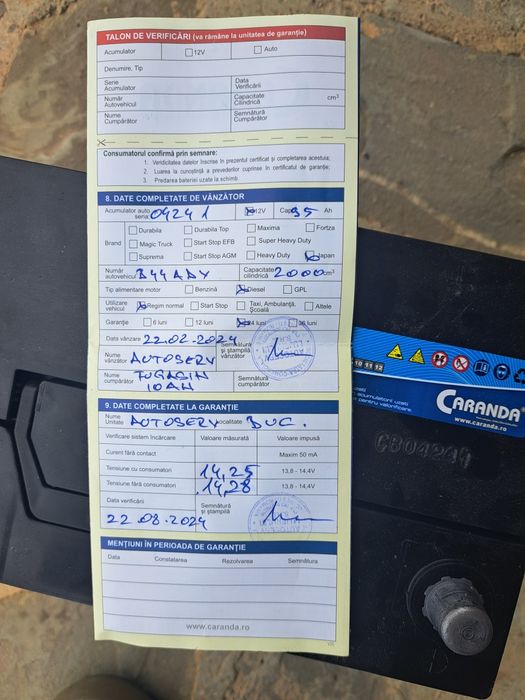 TALON DE VERIFICĂRI (va rămâne la unitatea de garanție)
Acumulator 12V Auto
Denumire, Tip
Serie Acumulator Data Verificării
Număr Autovehicul Capacitate Cilindrică cm³
Nume Cumpărător Semnătură Cumpărător
Consumatorul confirmă prin semnare:
1. Veridicitatea datelor înscrise în prezentul certificat și completarea acestuia;
2. Luarea la cunoștință a prevederilor cuprinse în certificatul de garanție;
3. Predarea bateriei uzate la schimb
8. DATE COMPLETATE DE VÂNZĂTOR
Acumulator auto seria: 09241 12V Cap. 95 Ah
Durabila Durabila Top Maxima Fortza
Brand Magic Truck Start Stop EFB Super Heavy Duty
Suprema Start Stop AGM Heavy Duty Japan
Număr autovehicul B44ADY Capacitate cilindrică 2000 cm³
Tip alimentare motor Benzină Diesel GPL
Utilizare vehicul Regim normal Start Stop Taxi, Ambulanță, Școală Altele
Garanție 6 luni 12 luni 24 luni 36 luni
Data vânzare 22.02-2024
Nume vânzător AUTOSERV Semnătură și ștampilă vânzător
Nume cumpărător IOAN Semnătură cumpărător
9. DATE COMPLETATE LA GARANȚIE
Nume Unitate AUTOSERV Localitate BUC.
Verificare sistem încărcare Valoare măsurată Valoare impusă
Curent fără contact Maxim 50 mA
Tensiune cu consumatori 14,25 13,8 - 14,4V
Tensiune fără consumatori 14,28 13,8 - 14,4V
Data verificării Semnătură și ștampilă
22.08.2024
MENȚIUNI ÎN PERIOADA DE GARANȚIE
Data Constatarea Rezolvarea Semnătura
www.caranda.ro
10 11 12
CARANDA
www.caranda.ro